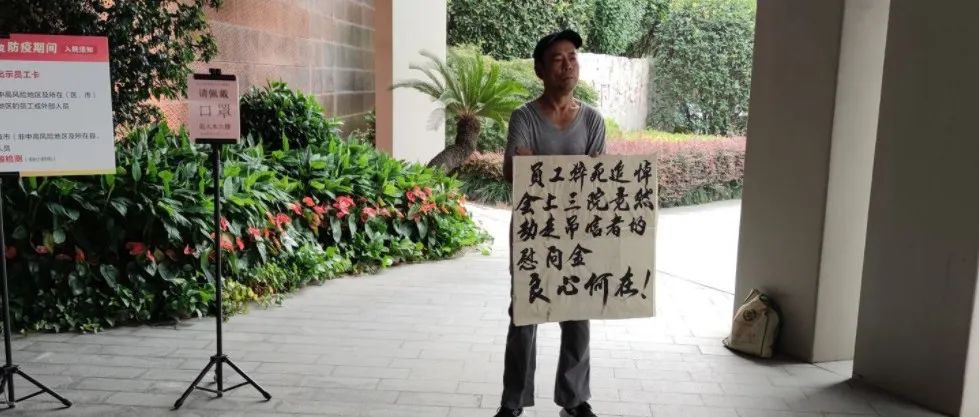 防疫期间 入院须知
出示员工卡
中高风险地区及所在（区、市）
地区的员工或外部人员
人员
检测
请佩戴
口罩
进入本大楼
员工猝死追悼
会上三院竟然
劫走吊唁者的
慰问金
良心何在！